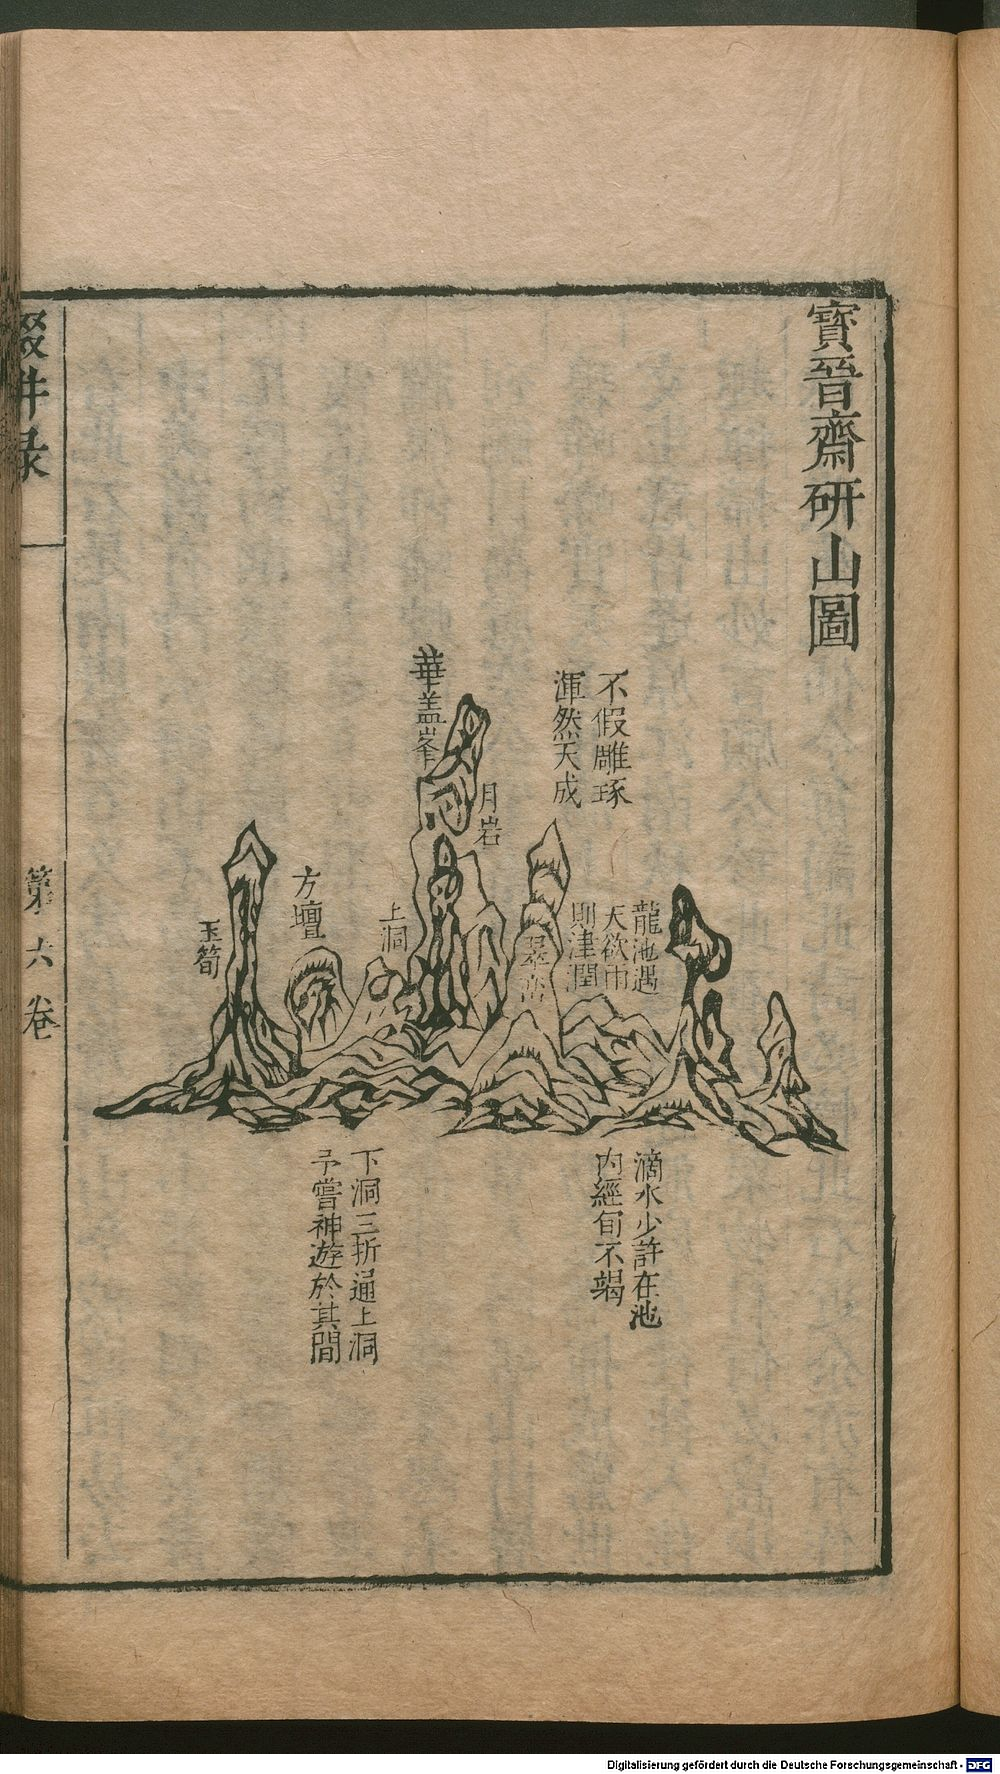 寶晉齋研山圖
不假雕琢
渾然天成
龍池遇
天欲雨
則津潤
翠巒
月岩
華盖峯
上洞
方壇
玉筍
滴水少許在池
内經旬不竭
下洞三折通上洞
予嘗神遊於其間
輟畊録
第六卷
Digitalisierung gefördert durch die Deutsche Forschungsgemeinschaft - DFG